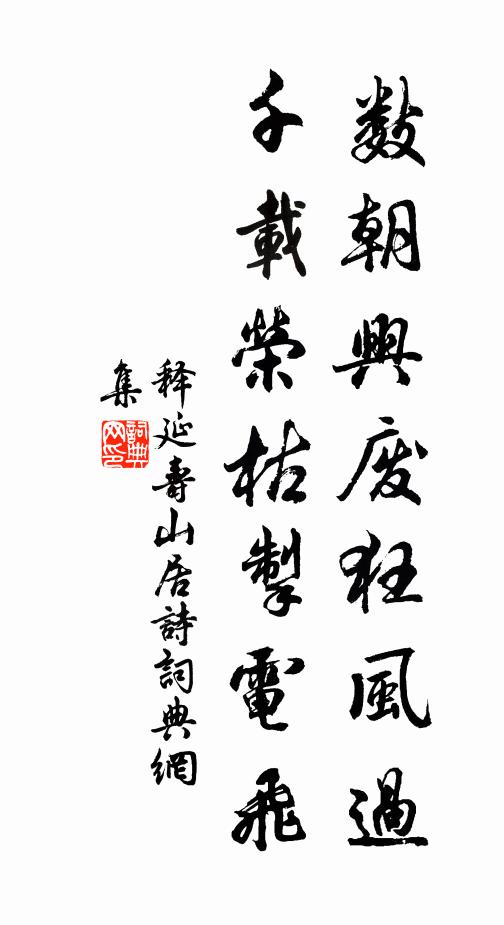 数朝興废狂風過
千載榮枯掣電飛
释延壽山居詩詞典網
集
詞典网印